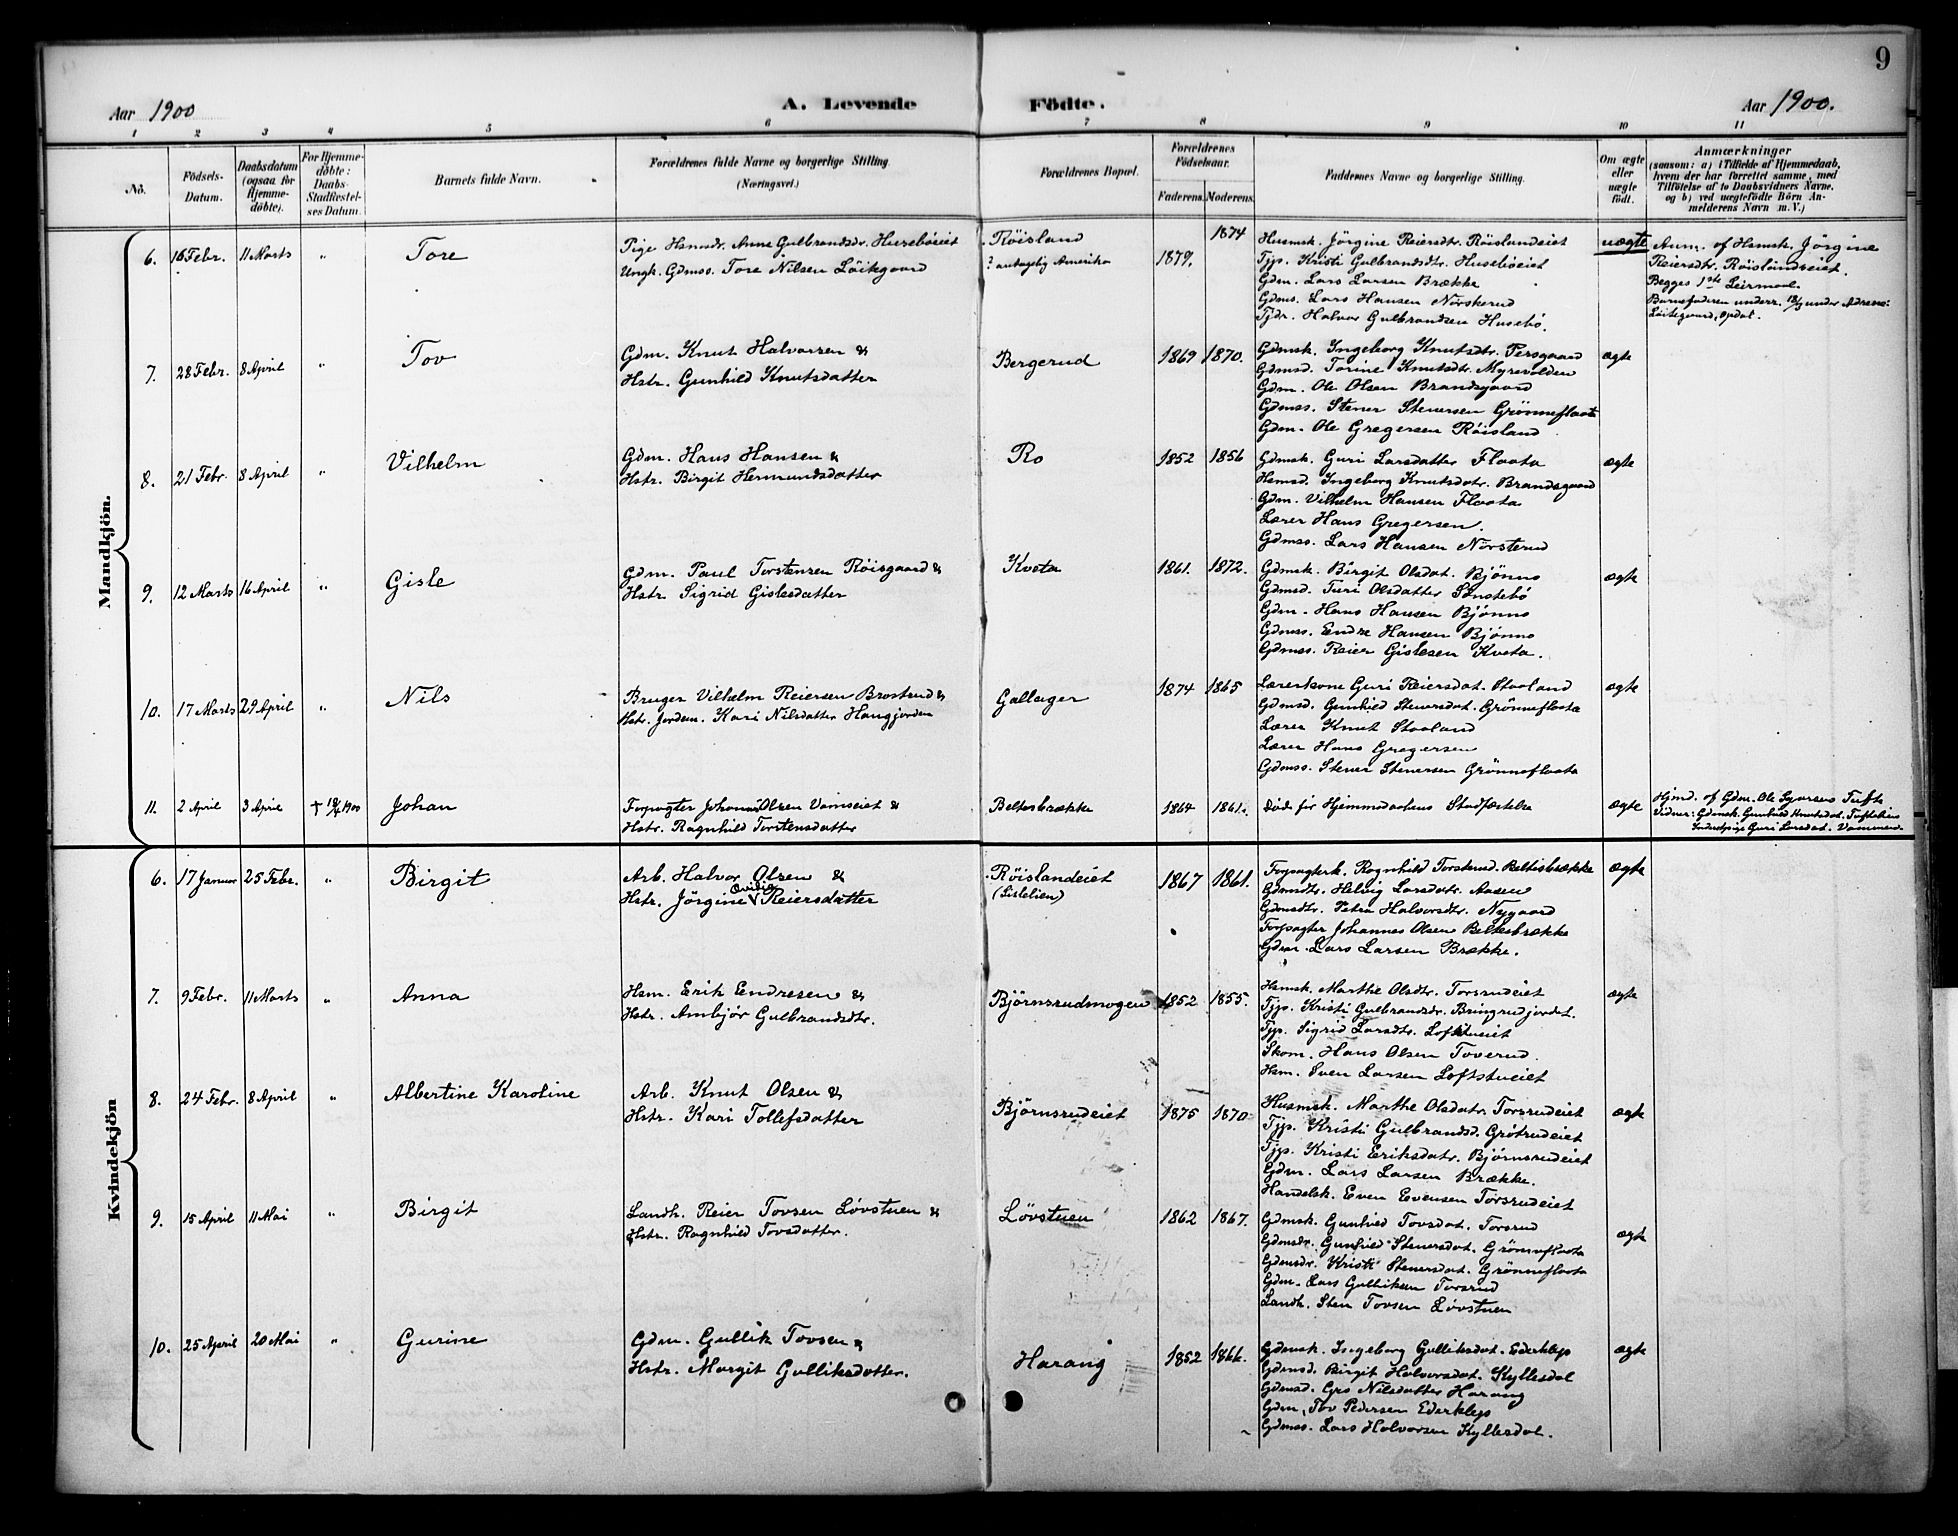 9
Aar 1900
A. Levende Födte.
Aar 1900.
1 2 3 4 5 6 7 8 9 10 11
No.
Födsels-Datum.
Daabsdatum (ogsaa for Hjemme-döbte).
For Hjemme-döbte: Daabs-Stadfæstel-ses Datum.
Barnets fulde Navn.
Forældrenes fulde Navne og borgerlige Stilling.
(Næringsvei.)
Forældrenes Bopæl.
Forældrenes Födselsaar.
Faderens. Moderens.
Faddernes Navne og borgerlige Stilling.
Om ægte eller uægte födt.
Anmærkninger
(saasom: a) i Tilfælde af Hjemmedaab, hvem der har forrettet samme, med Tilföielse af to Daabsvidners Navne, og b) ved uægtefödte Börn An-melderens Navn m. V.)
Mandkjön.
6. 16 Febr. 11 Marts " Tore
Pige Hsmdr. Anne Gulbrandsdr. Husebøeiet
Ungk. Gdmss. Tore Nilsen Løitegaard
Röisland
? antagelig Amerika
1879. 1874
Husmsk. Jörgine Reiersdtr. Röislandeiet
Tjp. Kristi Gulbrandsdtr. Husebøeiet
Gdm. Lars Larsen Brække
Gdmss. Lars Hansen Norsterud
Tjdr. Halvor Gulbrandsen Husebö.
uægte
Anm. af Hsmsk. Jörgine
Reiersdtr. Röislandseiet.
Begges 1ste Leirmaal.
Barnefaderen underr. under Adresse:
Löitegaard, Opdal.
7. 28 Febr. 8 April " Tov
Gdm. Knut Halvorsen &
Hstr. Gunhild Knutsdatter
Bergerud
1869 1870.
Gdmsk. Ingeborg Knutsdtr. Persgaard
Gdmsd. Torine Knutsdtr. Myrevolden
Gdm. Ole Olsen Brandsgaard
Gdmss. Stener Stenersen Grönneflaata
Gdm. Ole Gregersen Röisland
ægte
8. 21 Febr. 8 April " Vilhelm
Gdm. Hans Hansen &
Hstr. Birgit Hermundsdatter
Ro
1852 1856
Gdmsk. Guri Larsdatter Flaata
Hsmsd. Ingeborg Knutsdtr. Brandsgaard
Gdm. Vilhelm Hansen Flaata
Lærer Hans Gregersen.
Gdmss. Lars Hansen Norsterud
ægte
9. 12 Marts 16 April " Gisle
Gdm. Paul Torstensen Röisgaard &
Hstr. Sigrid Gislesdatter
Kveta
1861. 1872.
Gdmsk. Birgit Olsdat. Bjönno
Gdmsd. Turi Olsdatter Sönstebö
Gdm. Hans Hansen Bjönno
Gdmss. Endre Hansen Bjönno
Gdmss. Reier Gislesen Kveta.
ægte
10. 17 Marts 29 April " Nils
Bruger Vilhelm Reiersen Brostrud &
Hstr. Jordem. Kari Nilsdatter Haugjorden
Gallager
1874 1865
Lærerkone Guri Reiersdat. Staaland
Gdmsd. Gunhild Stenersdat. Grönneflaata
Lærer Knut Staaland
Lærer Hans Gregersen
Gdmss. Stener Stenersen Grönneflaata
ægte
11. 2 April 3 April † 1900 Johan
Forpagter Johannes Olsen Vamseiet &
Hstr. Ragnhild Torstensdatter
Beltesbrække
1864 1861.
Död för Hjemmedaabens Stadfæstelse
ægte
Hjmd. af Gdm. Ole Syversen Tufte
Vidner: Gdmsk. Gunhild Knutsdat. Tufteiein
Guri Larsdat.
Kvindekjön
6. 17 Januar 25 Febr. " Birgit
Arb. Halvor Olsen &
Hstr. Jörgine Ovidia Reiersdatter
Röislandeiet
(Lislelien)
1867 1861.
Forpagterk. Ragnhild Torstensd. Beltesbrække
Gdmdtr. Helvig Larsdatr. Aasen
Gdmsdtr. Petra Halvorsdtr. Nygaard
Forpagter Johannes Olsen Beltesbrække
Gdm. Lars Larsen Brække.
ægte
7. 9 Febr. 11 Marts " Anna
Hsm. Erik Endresen &
Hstr. Ambjör Gulbrandsdtr.
Björnsrudmogen
1852 1855.
Hsmsk. Marthe Olsdtr. Torsrudeiet
Tjp. Kristi Gulbrandsdr. Bringrudjordet.
Tjp. Sigrid Larsdtr. Loftstueiet
Skom. Hans Olsen Toverud.
Hsm. Sven Larsen Loftstueiet
ægte
8. 24 Febr. 8 April " Albertine Karoline
Arb. Knut Olsen &
Hstr. Kari Tollefsdatter
Björnsrudeiet
1875 1870
Husmsk. Marthe Olsdatr. Torsrudeiet
Tjp. Kristi Gulbrandsd. Grötrudeiet
Tjp. Kristi Eriksdatr. Björnsrudeiet
Gdm. Lars Larsen Brække.
Handelsk. Even Evensen Torsrudeiet
ægte
9. 15 April 11 Mai " Birgit
Landh. Reier Tovsen Lövstuen &
Hstr. Ragnhild Tovsdatter.
Lövstuen
1862 1867.
Gdmsk. Gunhild Tovsdat. Torsrud
Gdmsdr. Gunhild Stenersdat. Grönneflaata
Gdmsdr. Kristi Stenersdat. Grönneflaata
Gdm. Lars Gulliksen Torsrud
Landh. Sten Tovsen Lövstuen
ægte
10. 25 April 20 Mai " Gurine
Gdm. Gullik Tovsen &
Hstr. Margit Gulliksdatter.
Harang
1852 1866.
Gdmsk. Ingeborg Gulliksdat. Ederklep
Gdmsd. Birgit Halvorsdat. Kyllesdal
Gdmsd. Gro Nilsdatter Harang
Gdm. Tov Pedersen Ederklep
Gdmss. Lars Halvorsen Kyllesdal.
ægte